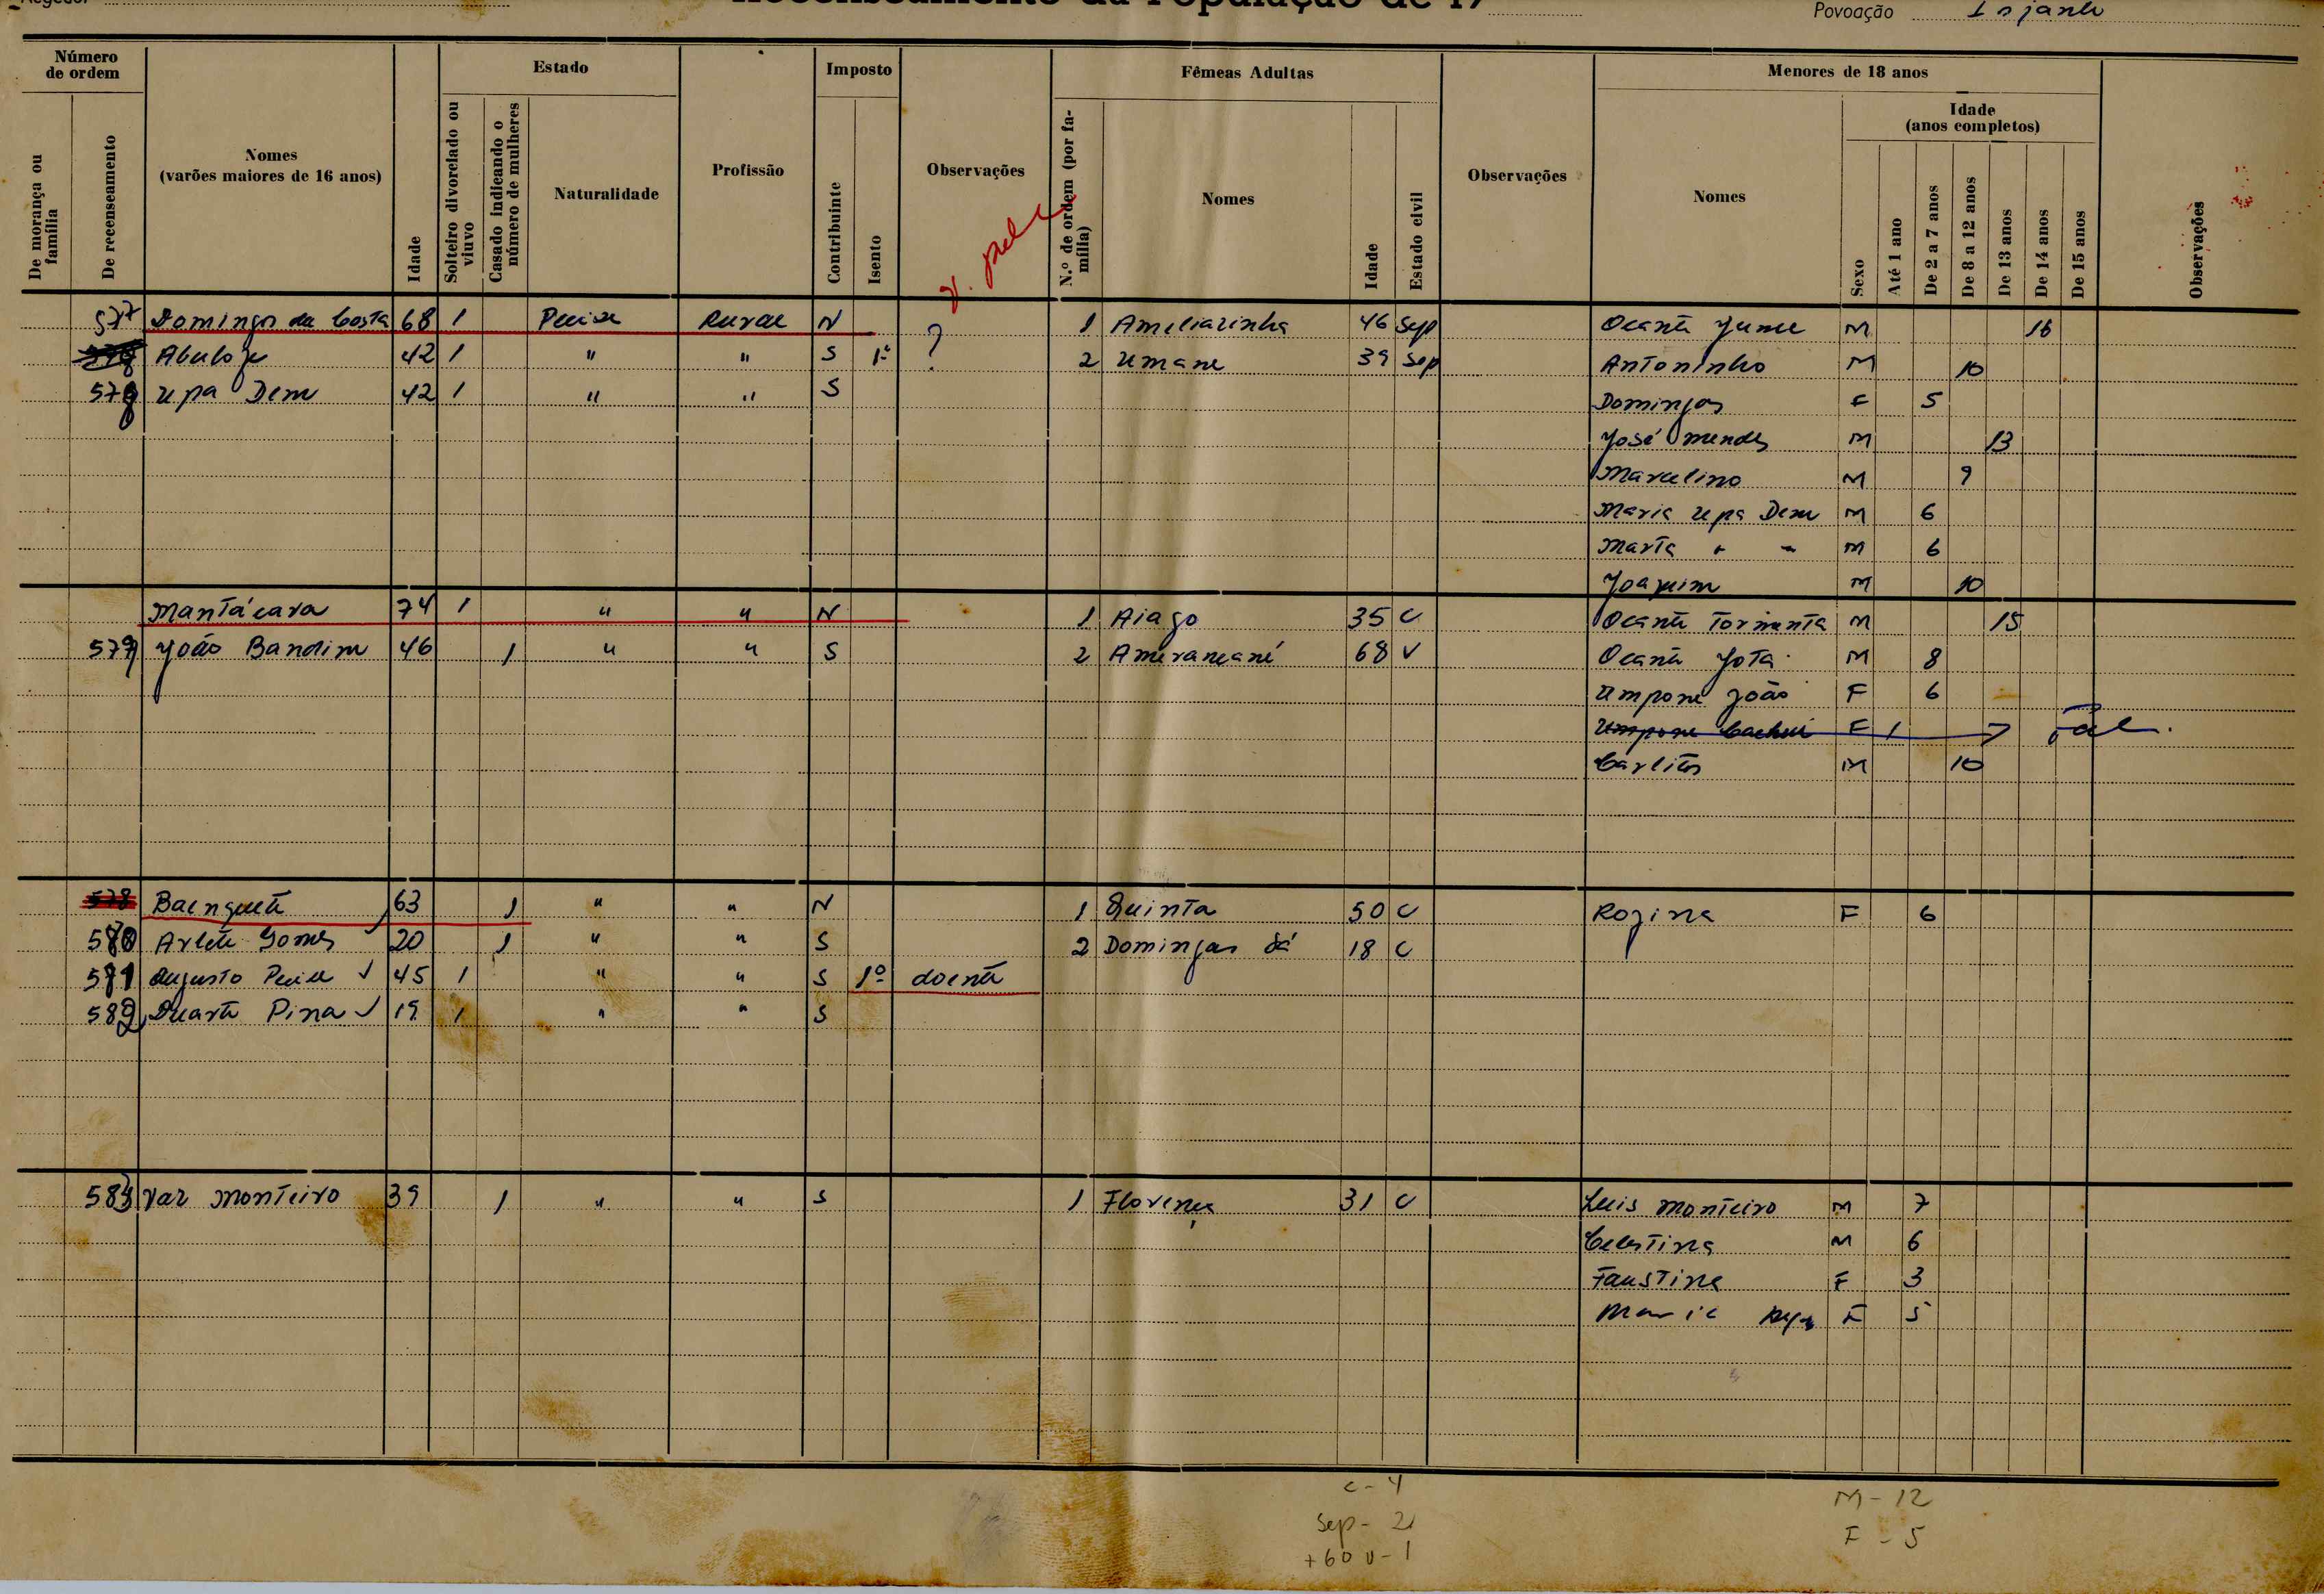 Regedor
Recenseamento da População de 19
Povoação Injante
Número de ordem
De morança ou família
De recenseamento
Nomes (varões maiores de 16 anos)
Idade
Estado
Solteiro divorciado ou viuvo
Casado indicando o número de mulheres
Naturalidade
Profissão
Imposto
Contribuinte
Isento
Observações
Fêmeas Adultas
N.º de ordem (por família)
Nomes
Idade
Estado civil
Observações
Menores de 18 anos
Nomes
Sexo
Idade (anos completos)
Até 1 ano
De 2 a 7 anos
De 8 a 12 anos
De 13 anos
De 14 anos
De 15 anos
Observações
577 Domingos da Costa 68 1 Pecixe Rural N ? 1 Ameliazinha 46 Sep Ocante Jume M 16
42 1 " " S 1º 2 Umane 39 Sep Antoninho M 10
578 Upa Dem 42 1 " " S Domingas F 5
José Mendes M 13
Marcelino M 9
Maria Upa Dem M 6
Marta " " M 6
Joaquim M 10
Mantácara 74 1 " " N 1 Aiago 35 C Ocante Tormenta M 15
579 João Bandim 46 1 " " S 2 68 V Ocante Jota M 8
Umpone João F 6
Umpone F 1 Fal.
Carlitos M 10
578 63 1 " " N 1 Quinta 50 C Rozina F 6
580 Arlete Gomes 20 1 " " S 2 Domingas Sá 18 C
581 Augusto Pecixe 45 1 " " S 1º doente
582 Duarte Pina 19 1 " " S
583 Vaz Monteiro 39 1 " " S 1 Florença 31 C Luis Monteiro M 7
Celestina M 6
Faustina F 3
Maria F 5
C - 4
Sep - 2
+60 V - 1
M - 12
F - 5